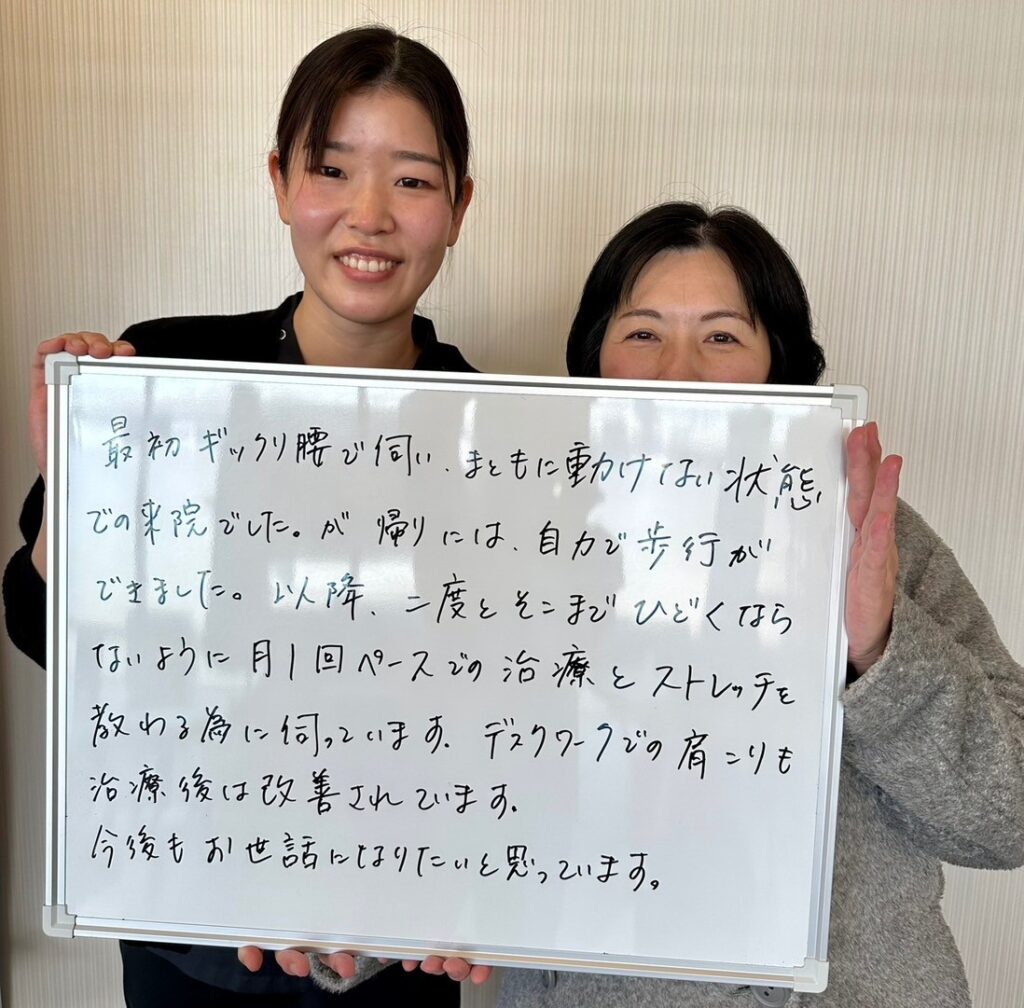 最初ギックリ腰で伺い、まともに動けない状態
での来院でした。が帰りには、自力で歩行が
できました。以降、二度とそこまでひどくなら
ないように月1回ペースでの治療とストレッチを
教わる為に伺っています。デスクワークでの肩こりも
治療後は改善されています。
今後もお世話になりたいと思っています。